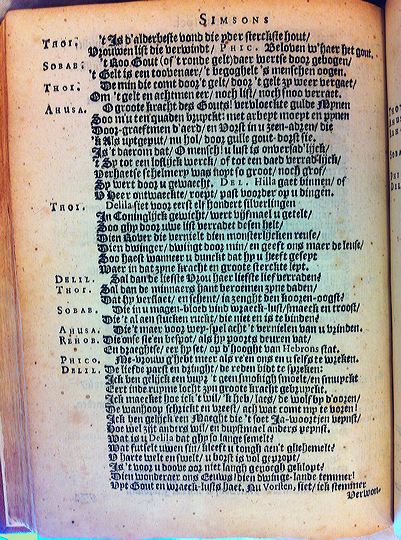 SIMSONS
THOI. 't Is d'alderbeste vond die p'der sterckste hout/
Vrouwen list die verwindt/ PHIC. Beloven w'haer het gout.
SOBAB. 't Roo Gout (of 't ronde gelt) daer wertse door gebogen/
't Gelt is een toovenaer/ 't begoghelt 's menschen oogen.
THOI. De min die comt door't gelt/ door 't gelt zy weer vergaet/
Om 't gelt en acht men eer/ noch list/ noch snoo verraet.
AHUSA. O groote kracht des Gouts! verbloeckte gulde Mynen
Soo m'u ten quaden bruyckt: met arbept moept en pynen
Door-graeft men d'aerd/ en Vorst in u zeen-adren/ die
'k Als uptgeput/ nu hol/ door gulle gout-dorst sie.
Is't daerom dat/ O mensch/ u lust is onversad'lijck/
't Sy tot een loflijck werck/ of tot een daed verrad'lijck/
Verhaetse schelmery was noyt so groot/ noch grof/
Sy wert door u gewaecht. DEL. Hilla gaet binnen/ of
V Heer ontwaeckte/ roept/ past voorder op u dingen.
THOI. Delila siet voor eerst elf hondert silverlingen
In Coninglijck gewicht/ wert vijfmael u getelt/
Soo ghy door uwe list verradet desen helt/
Dien Rover die vernielt dien monsterlijcken reuse/
Dien dwinger/ dwingt door min/ en geeft ons maer de leuse/
Soo haest wanneer u dunckt dat hy u heeft geseyt
Waer in dat zyne kracht en groote sterckte leyt.
DELIL. Sal dan de liefste Vrou haer liefste lief verraden?
THOI. Sal dan de minnaers hant beroemen zyne daden/
Dat hy verslaet/ en schent/ ja zenght den kooren-oogst?
SOBAB. Die in u magen-bloed vind wraeck-lust/ smaeck en troost/
Die 't al aen stucken ruckt/ die niet en is te binden?
AHUSA. Die 't maer voor wey-spel acht 't vernielen van u vrinden.
REHOB. Die onse sie en bespot/ als hy poorten deuren vat/
En draeghtse/ eer hy set/ op d'hooghst van Hebrons stat.
PHICO. Me-vrouw ghy hebt meer als re'en ons en u self te wreken.
DELIL. De liefde parst en dringht/ de reden bidt te spreken:
Ick ben gelijck een vupr 't geen smokigh smoelt/ en smuyckt
Eert inde rupme locht zyn groote kracht gebruyckt.
Ick maecket hoe ick 't wil/ 'k heb/ laes/ de wolf by d'ooren/
De wanhoop schrickt en vreest/ ach wat comt my te voren!
Ick ben gelijck een Maeght die 't soet Ja-woortjen veynst/
Hoe wel zijt anders wil/ en duysmael anders peynst.
Wat is u Delila dat ghy so lange semelt?
Wat futselt uwen sin/ kleeft u tongh aen't ghehemelt?
V harte wel en swelt/ u borst is vol gepropt/
Is 't voor u doove oor niet langh genoegh geklopt?
Dien wonder aer ons Eeuws! dien dwinge-lande temmer!
Uyt Gout en wraeck-lusts haet. Nu Vorsten, siet/ ick stemmer
Verwon-